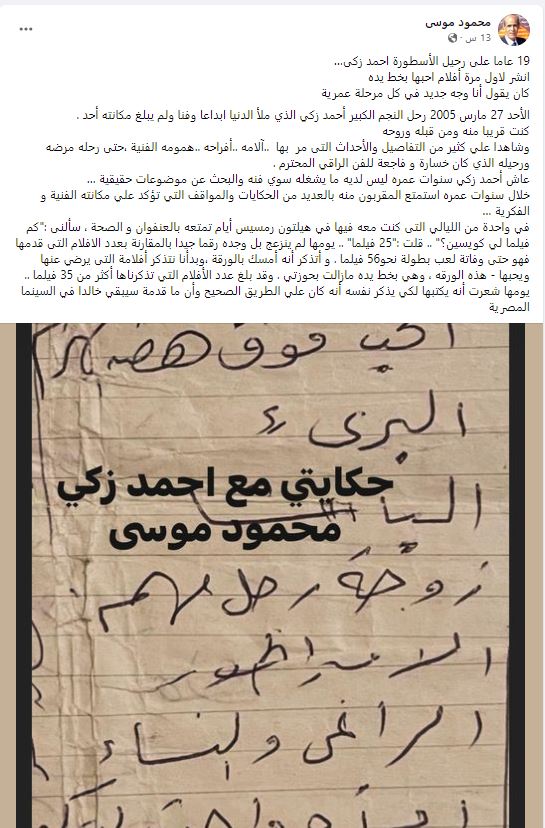 محمود موسى
13 س ·
19 عاما على رحيل الأسطورة احمد زكى...
انشر لاول مرة أفلام احبها بخط يده
كان يقول أنا وجه جديد في كل مرحلة عمرية
الأحد 27 مارس 2005 رحل النجم الكبير أحمد زكي الذي ملأ الدنيا ابداعا وفنا ولم يبلغ مكانته أحد .
كنت قريبا منه ومن قبله وروحه
وشاهدا علي كثير من التفاصيل والأحداث التى مر بها ..آلامه ..أفراحه ..همومه الفنية ،حتى رحله مرضه
ورحيله الذي كان خسارة و فاجعة للفن الراقي المحترم .
عاش أحمد زكي سنوات عمره ليس لديه ما يشغله سوي فنه والبحث عن موضوعات حقيقية ...
خلال سنوات عمره استمتع المقربون منه بالعديد من الحكايات والمواقف التي تؤكد علي مكانته الفنية و
الفكرية ...
في واحدة من الليالي التى كنت معه فيها في هيلتون رمسيس أيام تمتعه بالعنفوان و الصحة ، سألنى :"كم
فيلما لي كويسين؟" .. قلت :"25 فيلما" .. يومها لم ينزعج بل وجده رقما جيدا بالمقارنة بعدد الافلام التى قدمها
فهو حتى وفاتة لعب بطولة نحو56 فيلما . و أتذكر أنه أمسك بالورقة ،وبدأنا نتذكر أفلامة التى يرضي عنها
ويحبها - هذه الورقه ، وهي بخط يده مازالت بحوزتي . وقد بلغ عدد الأفلام التي تذكرناها أكثر من 35 فيلما ..
يومها شعرت أنه يكتبها لكي يذكر نفسه أنه كان علي الطريق الصحيح وأن ما قدمة سيبقي خالدا في السينما
المصرية
احب فوق هضبة الهرم
البرىء
حكايتي مع احمد زكي
البيه
محمود موسى
زوجة رجل مهم
الامبراطور
الراعى والنساء